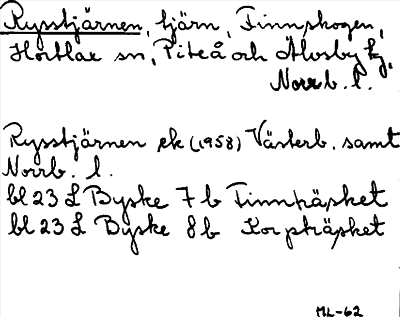 Rysstjärnen, tjärn, Finnskogen,
Hortlax sn, Piteå och Älvsby tg,
Norrb. l.
Rysstjärnen ek (1958) Västerb. samt
Norrb. l.
bl 23 L Byske 7b Finnträsket
bl 23 L Byske 8b Korpträsket
ML-62